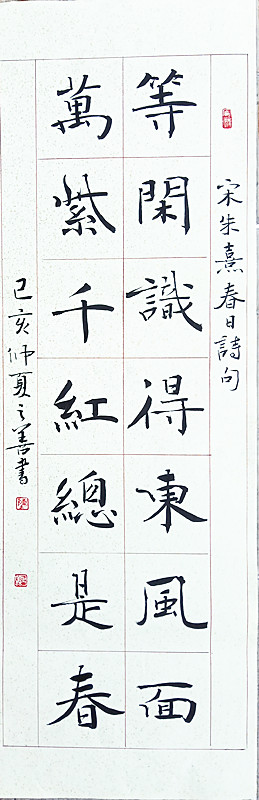 宋朱熹春日詩句
等閑識得東風面
萬紫千紅總是春
己亥仲夏之善書